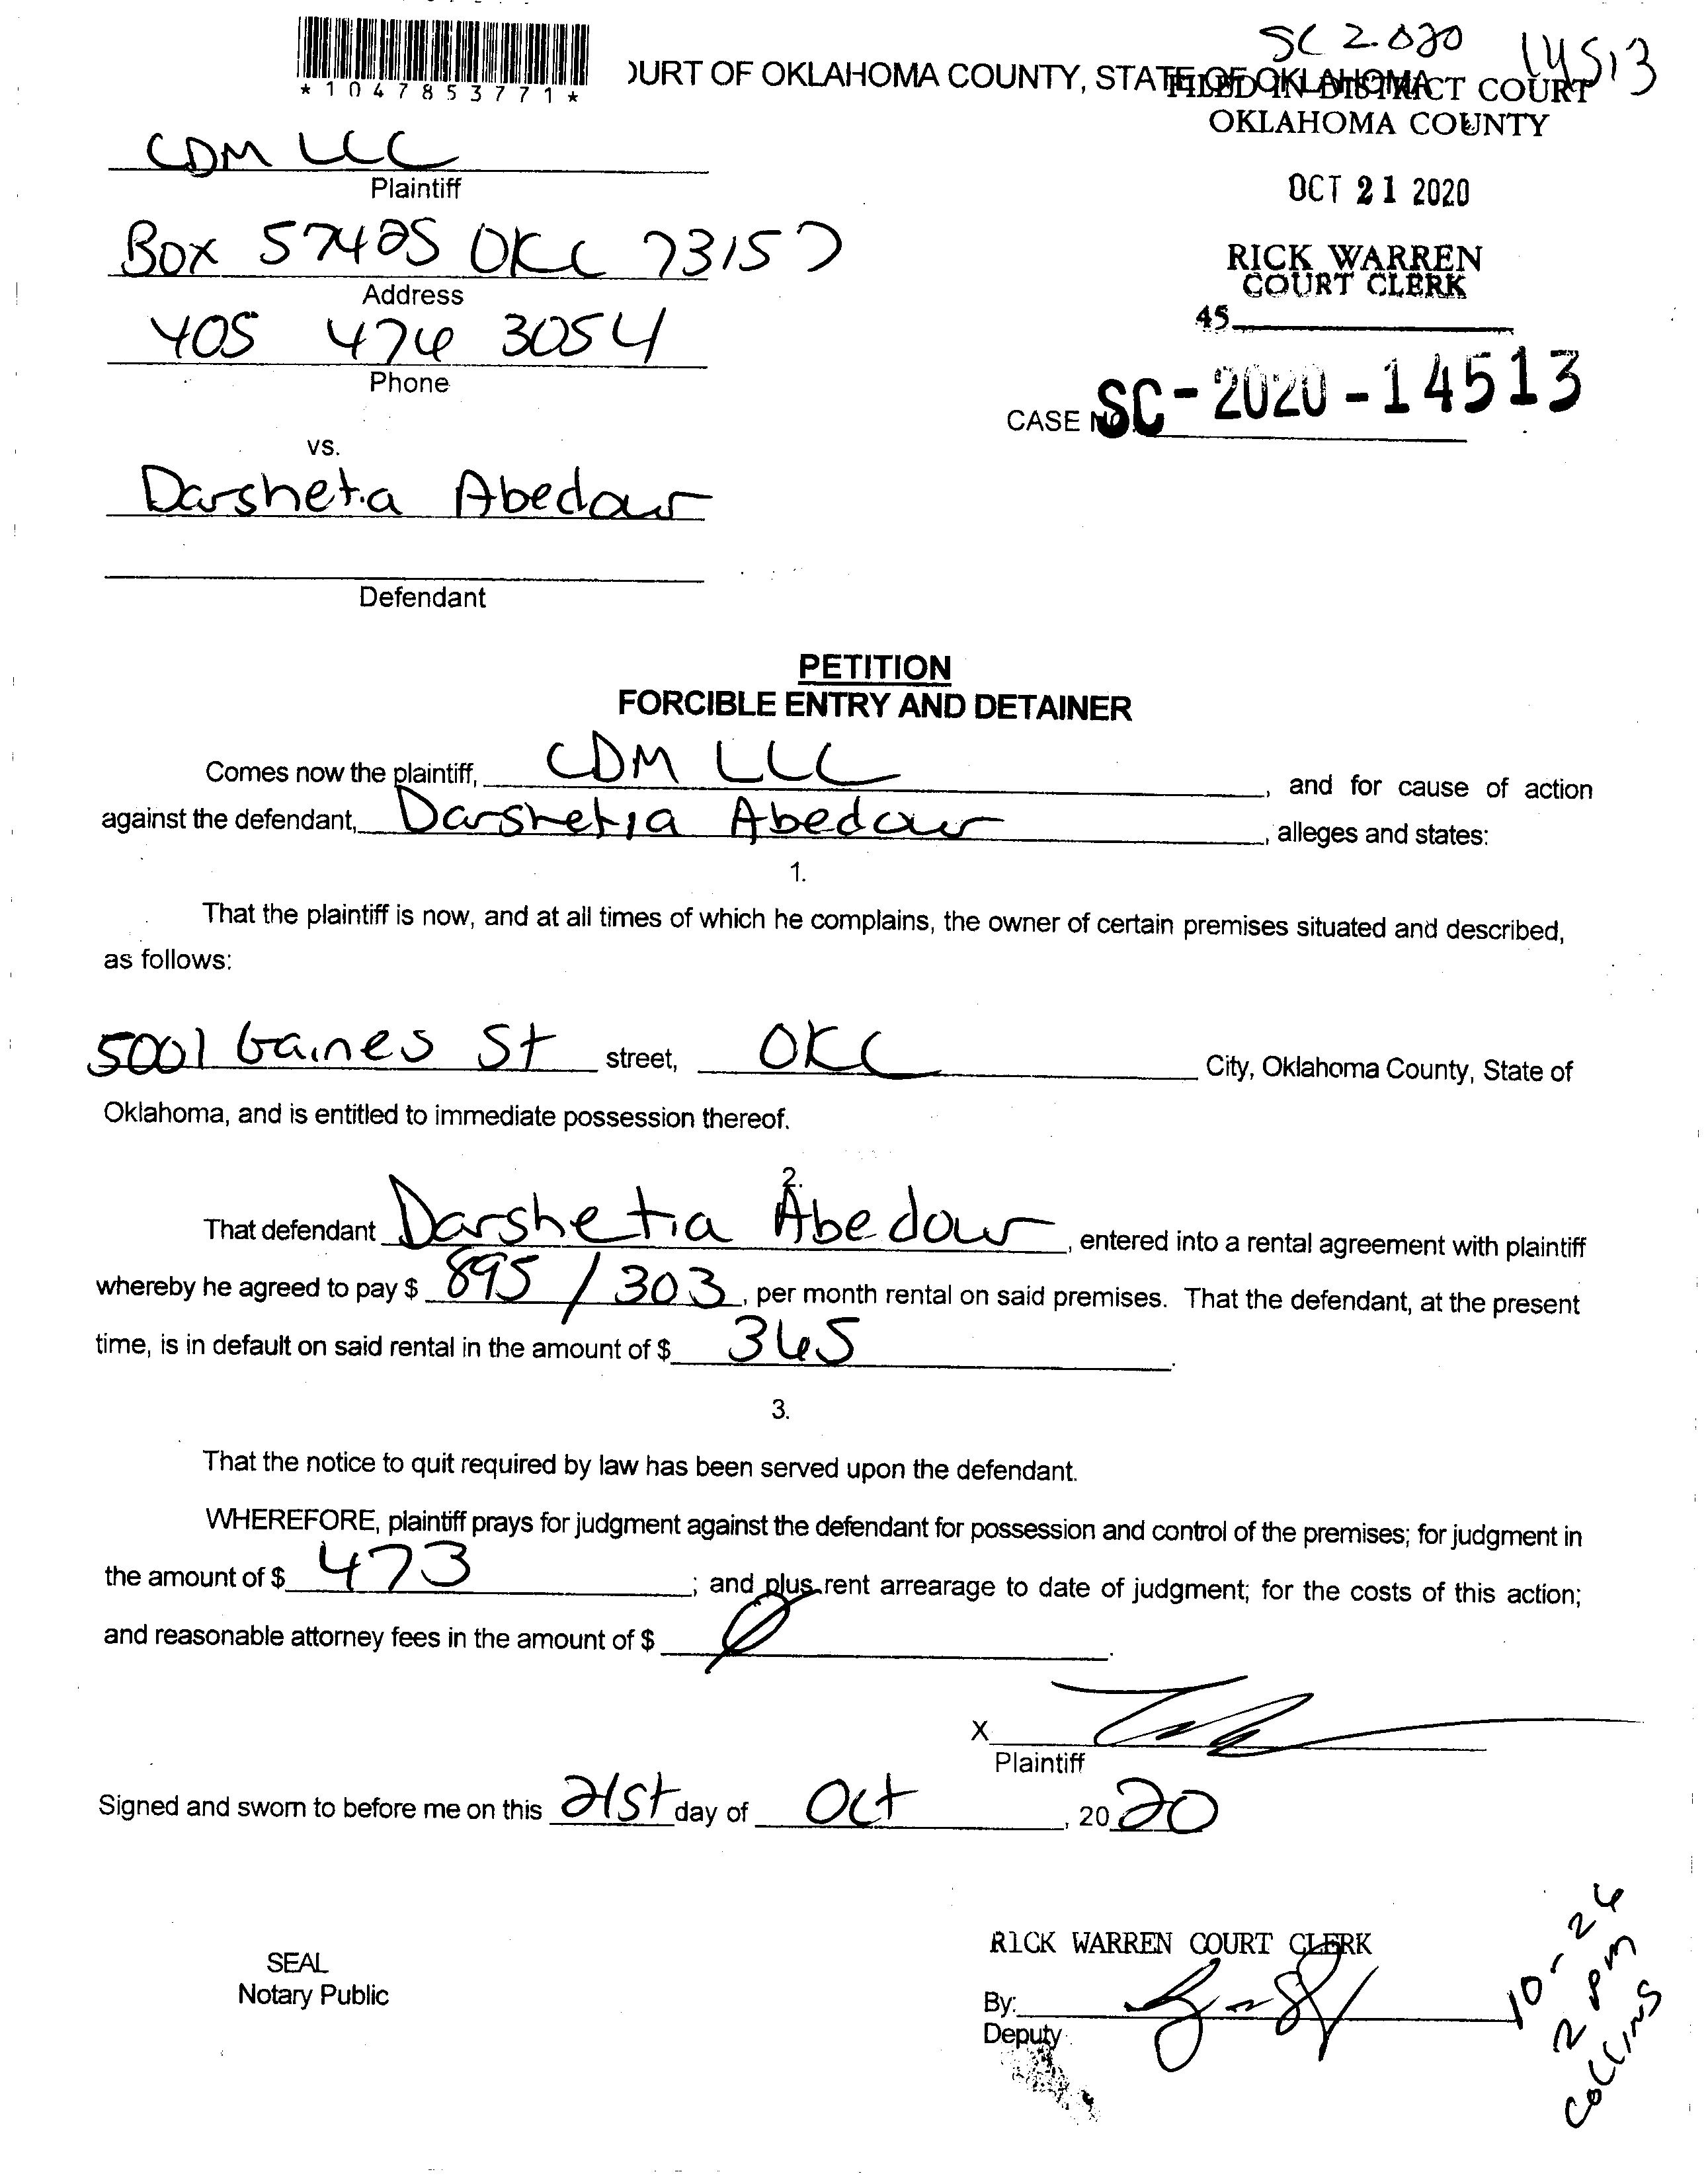 SC 2020 14513
*1047853771*
OURT OF OKLAHOMA COUNTY, STATE OF OKLAHOMA
FILED IN DISTRICT COURT
OKLAHOMA COUNTY
CDM LLC
Plaintiff
OCT 21 2020
Box 57425 OKC 73157
Address
RICK WARREN
COURT CLERK
45
405 474 3054
Phone
CASE NO. SC-2020-14513
vs.
Darshetia Abedour
Defendant
PETITION
FORCIBLE ENTRY AND DETAINER
Comes now the plaintiff, CDM LLC, and for cause of action
against the defendant, Darshetia Abedour, alleges and states:
1.
That the plaintiff is now, and at all times of which he complains, the owner of certain premises situated and described,
as follows:
5001 Gaines St street, OKC City, Oklahoma County, State of
Oklahoma, and is entitled to immediate possession thereof.
2.
That defendant Darshetia Abedour, entered into a rental agreement with plaintiff
whereby he agreed to pay $ 895 / 303, per month rental on said premises. That the defendant, at the present
time, is in default on said rental in the amount of $ 365.
3.
That the notice to quit required by law has been served upon the defendant.
WHEREFORE, plaintiff prays for judgment against the defendant for possession and control of the premises; for judgment in
the amount of $ 473; and plus rent arrearage to date of judgment; for the costs of this action;
and reasonable attorney fees in the amount of $ Ø.
X
Plaintiff
Signed and sworn to before me on this 21st day of Oct, 2020
SEAL
Notary Public
RICK WARREN COURT CLERK
By:
Deputy
10-26
2 pm
Collins